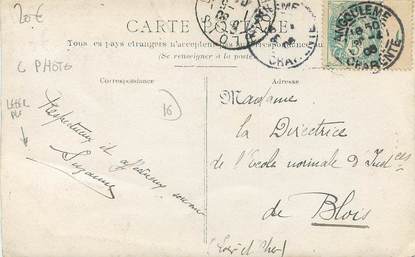 20€
CARTE POSTALE
Tous les pays étrangers n'acceptent pas la correspondance
(Se renseigner à la poste)
C PHOTO
LEGER PLI
Correspondance
16
Respectueux et affectueux souvenir
Suzanne
Adresse
Madame
la Directrice
de l'Ecole normale d'Inst ces
de Blois
(Loir et Cher)
ANGOULEME
CHARENTE
ANGOULEME
CHARENTE